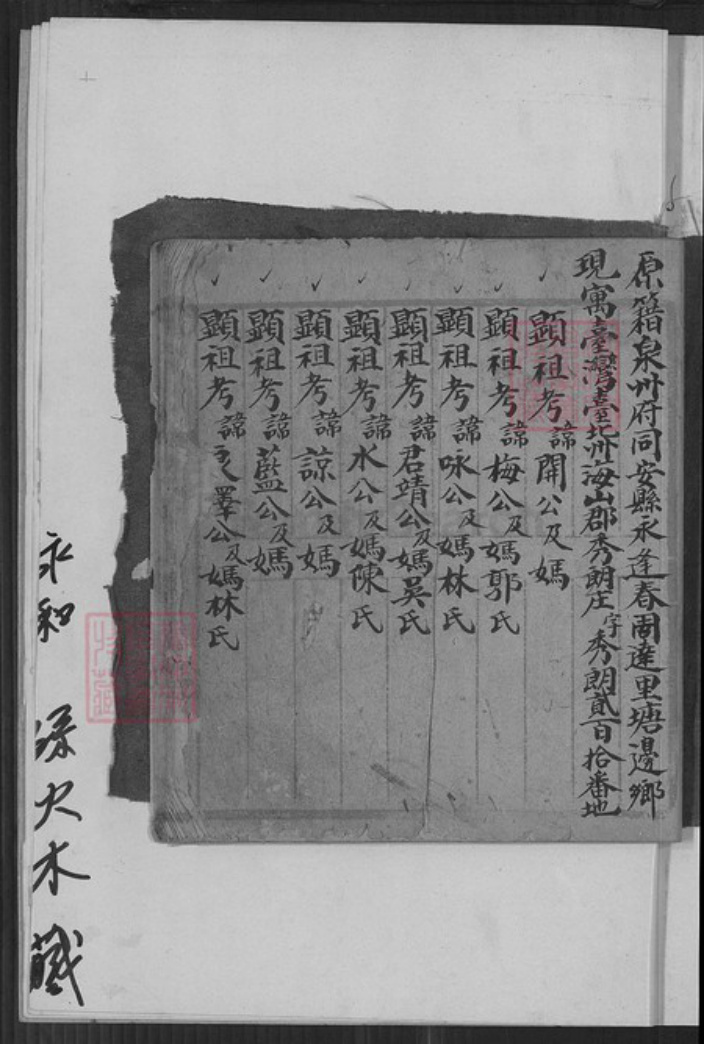 原籍泉州府同安縣永逢春周達里塘邊鄉
現寓臺灣臺北州海山郡秀朗庄字秀朗貳百拾番地
顯祖考諱開公及媽
顯祖考諱梅公及媽郭氏
顯祖考諱咏公及媽林氏
顯祖考諱君靖公及媽吳氏
顯祖考諱水公及媽陳氏
顯祖考諱諒公及媽
顯祖考諱藍公及媽
顯祖考諱公及媽林氏
永和 火木藏